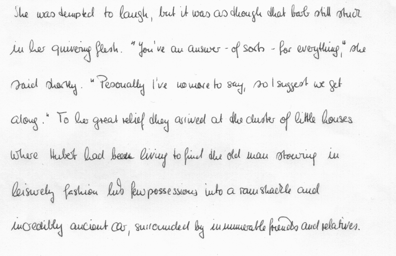 She was tempted to laugh, but it was as though that barb still stuck
in her quivering flesh. "You've an answer - of sorts - for everything," she
said sharply. "Personally I've no more to say, so I suggest we get
along." To her great relief they arrived at the cluster of little houses
where Hubert had been living to find the old man stowing in
leisurely fashion his few possessions into a ramshackle and
incredibly ancient car, surrounded by innumerable friends and relatives.